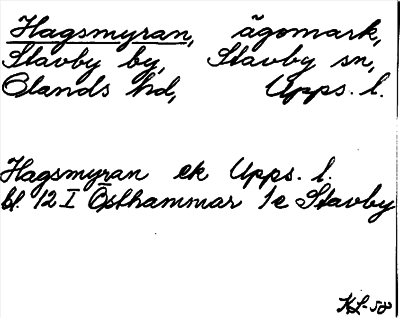 Hagsmyran, ägomark,
Stavby by, Stavby sn,
Olands hd, Upps. l.
Hagsmyran ek Upps. l.
bl. 12 I Östhammar 1e Stavby
KL-58